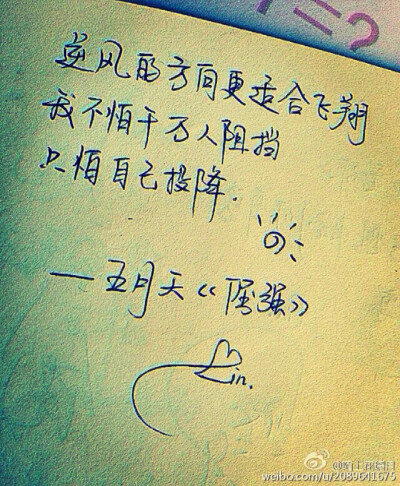 =?
逆风的方向更适合飞翔
我不怕千万人阻挡
只怕自己投降.
—五月天《倔强》
Lin.
weibo.com/u/2089641675